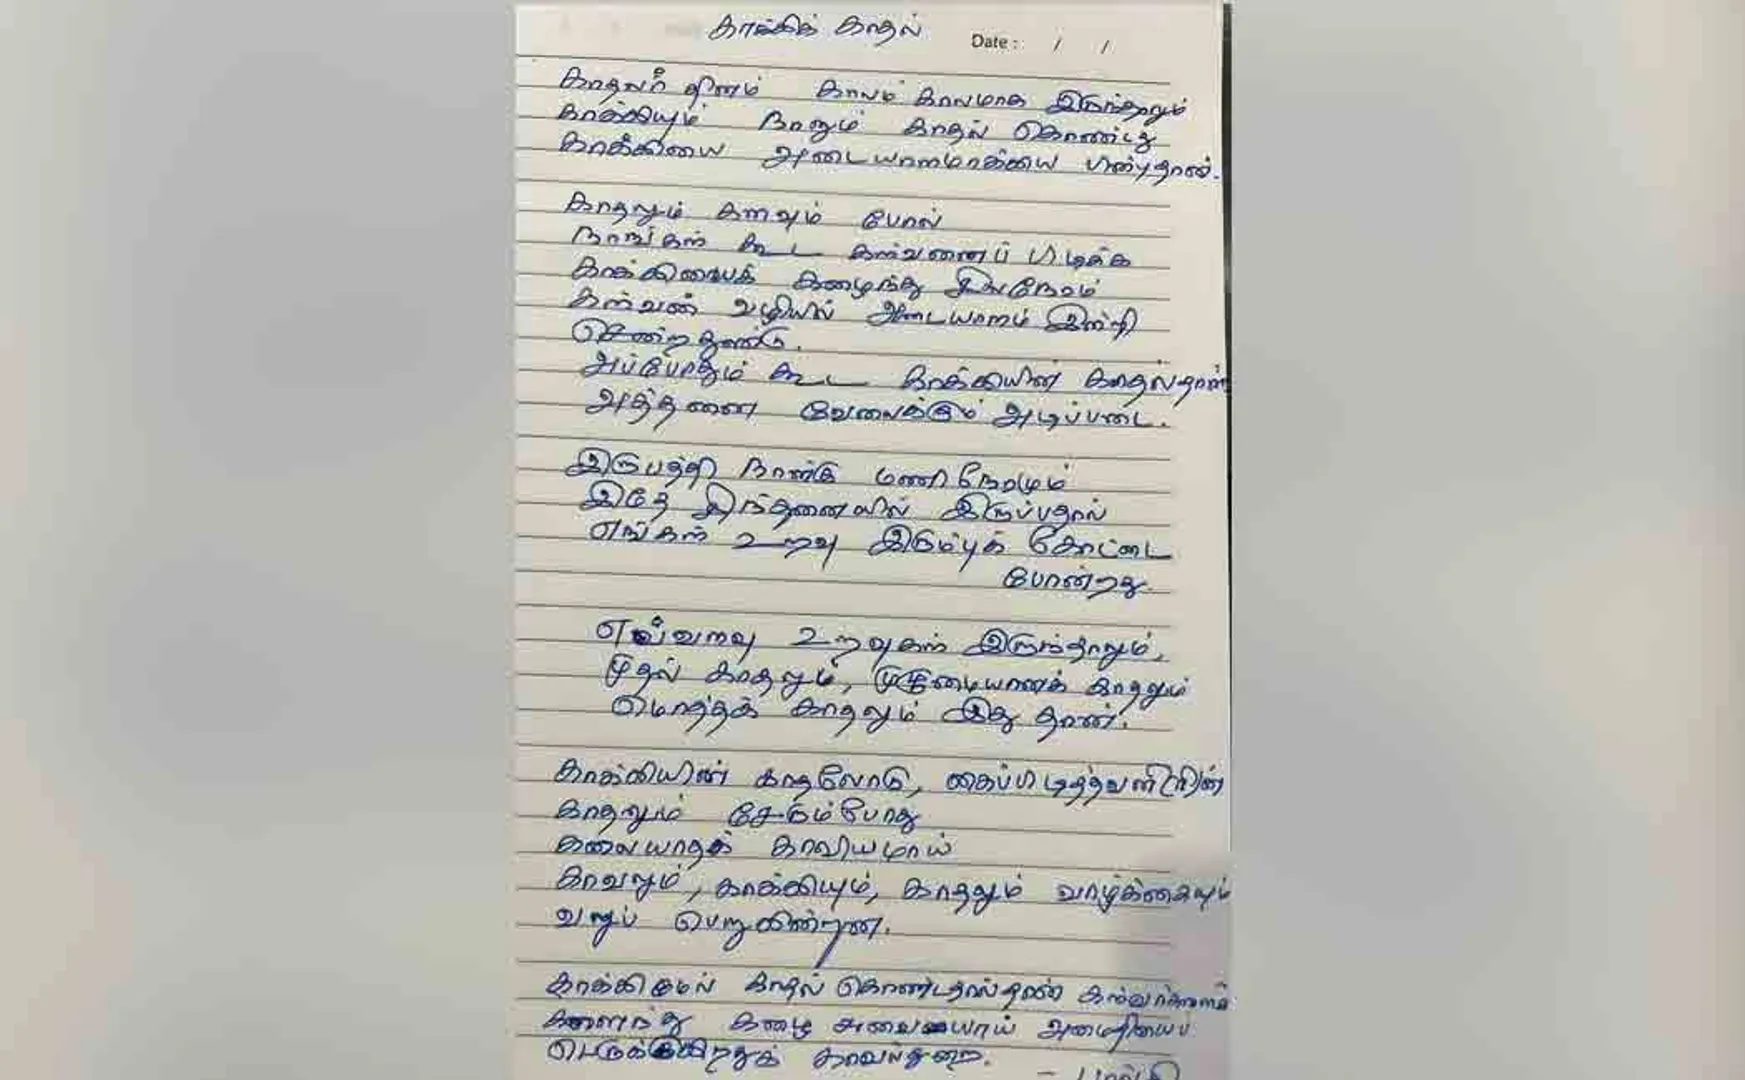 காக்கிக் காதல்
Date : / /
காதலர் தினம் காலம் காலமாக இருந்தாலும்
காக்கியும் நானும் காதல் கொண்டது
காக்கியை அடையாளமாக்கிய பின்புதான்.
காதலும் களவும் போல்
நாங்கள் கூட கள்வனைப் பிடிக்க
காக்கியைக் களைந்து
கள்வன் வழியில் அடையாளம் இன்றி
சென்றதுண்டு.
அப்போதும் கூட காக்கியின் காதல்தான்
அத்தனை வேலைக்கும் அடிப்படை.
இருபத்தி நான்கு மணிநேரமும்
இதே சிந்தனையில் இருப்பதால்
எங்கள் உறவு இரும்புக் கோட்டை
போன்றது.
எவ்வளவு உறவுகள் இருந்தாலும்,
முதல் காதலும், முழுமையானக் காதலும்
மொத்தக் காதலும் இது தான்.
காக்கியின் காதலோடு, கைப்பிடித்தவளி(ரி)ன்
காதலும் சேரும்போது
கலையாதக் காவியமாய்
காவலும், காக்கியும், காதலும் வாழ்க்கையும்
வலுப் பெறுகின்றன.
காக்கிமேல் காதல் கொண்டதால்தான்
களைந்து அமைதியைப்
காவல்துறை.